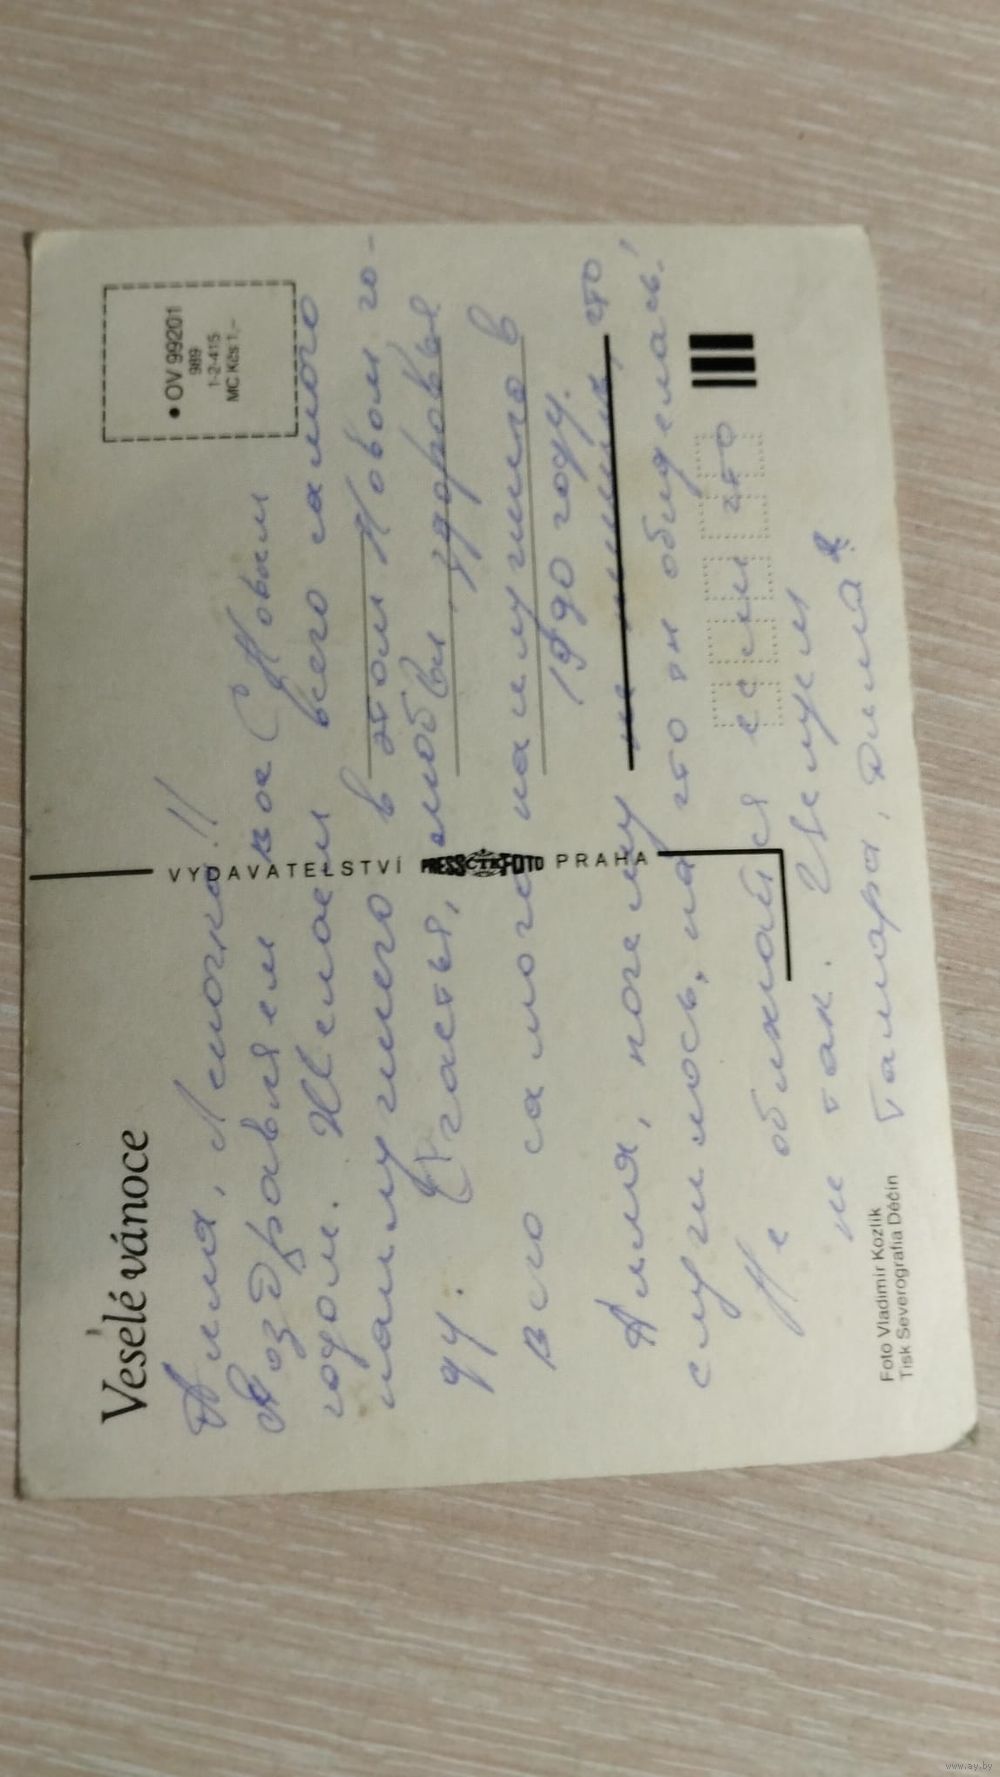 Veselé vánoce
• OV 99201
989
1-2-415
MC Kčs 1,–
Аиля, Леночка!!
Поздравляем вас с Новым
годом. Желаем всего самого
наилучшего в этом Новом го-
ду. Счастья, любви, здоровья
всего самого наилучшего в
1990 году.
Аиля, почему не пишешь, что
случилось, на что он обиделась!
Не обижайся если что
не так. Целуем
Тамара, Дима
VYDAVATELSTVÍ PRESSFOTO PRAHA
ČTK
Foto Vladimír Kozlík
Tisk Severografia Děčín
www.ay.by